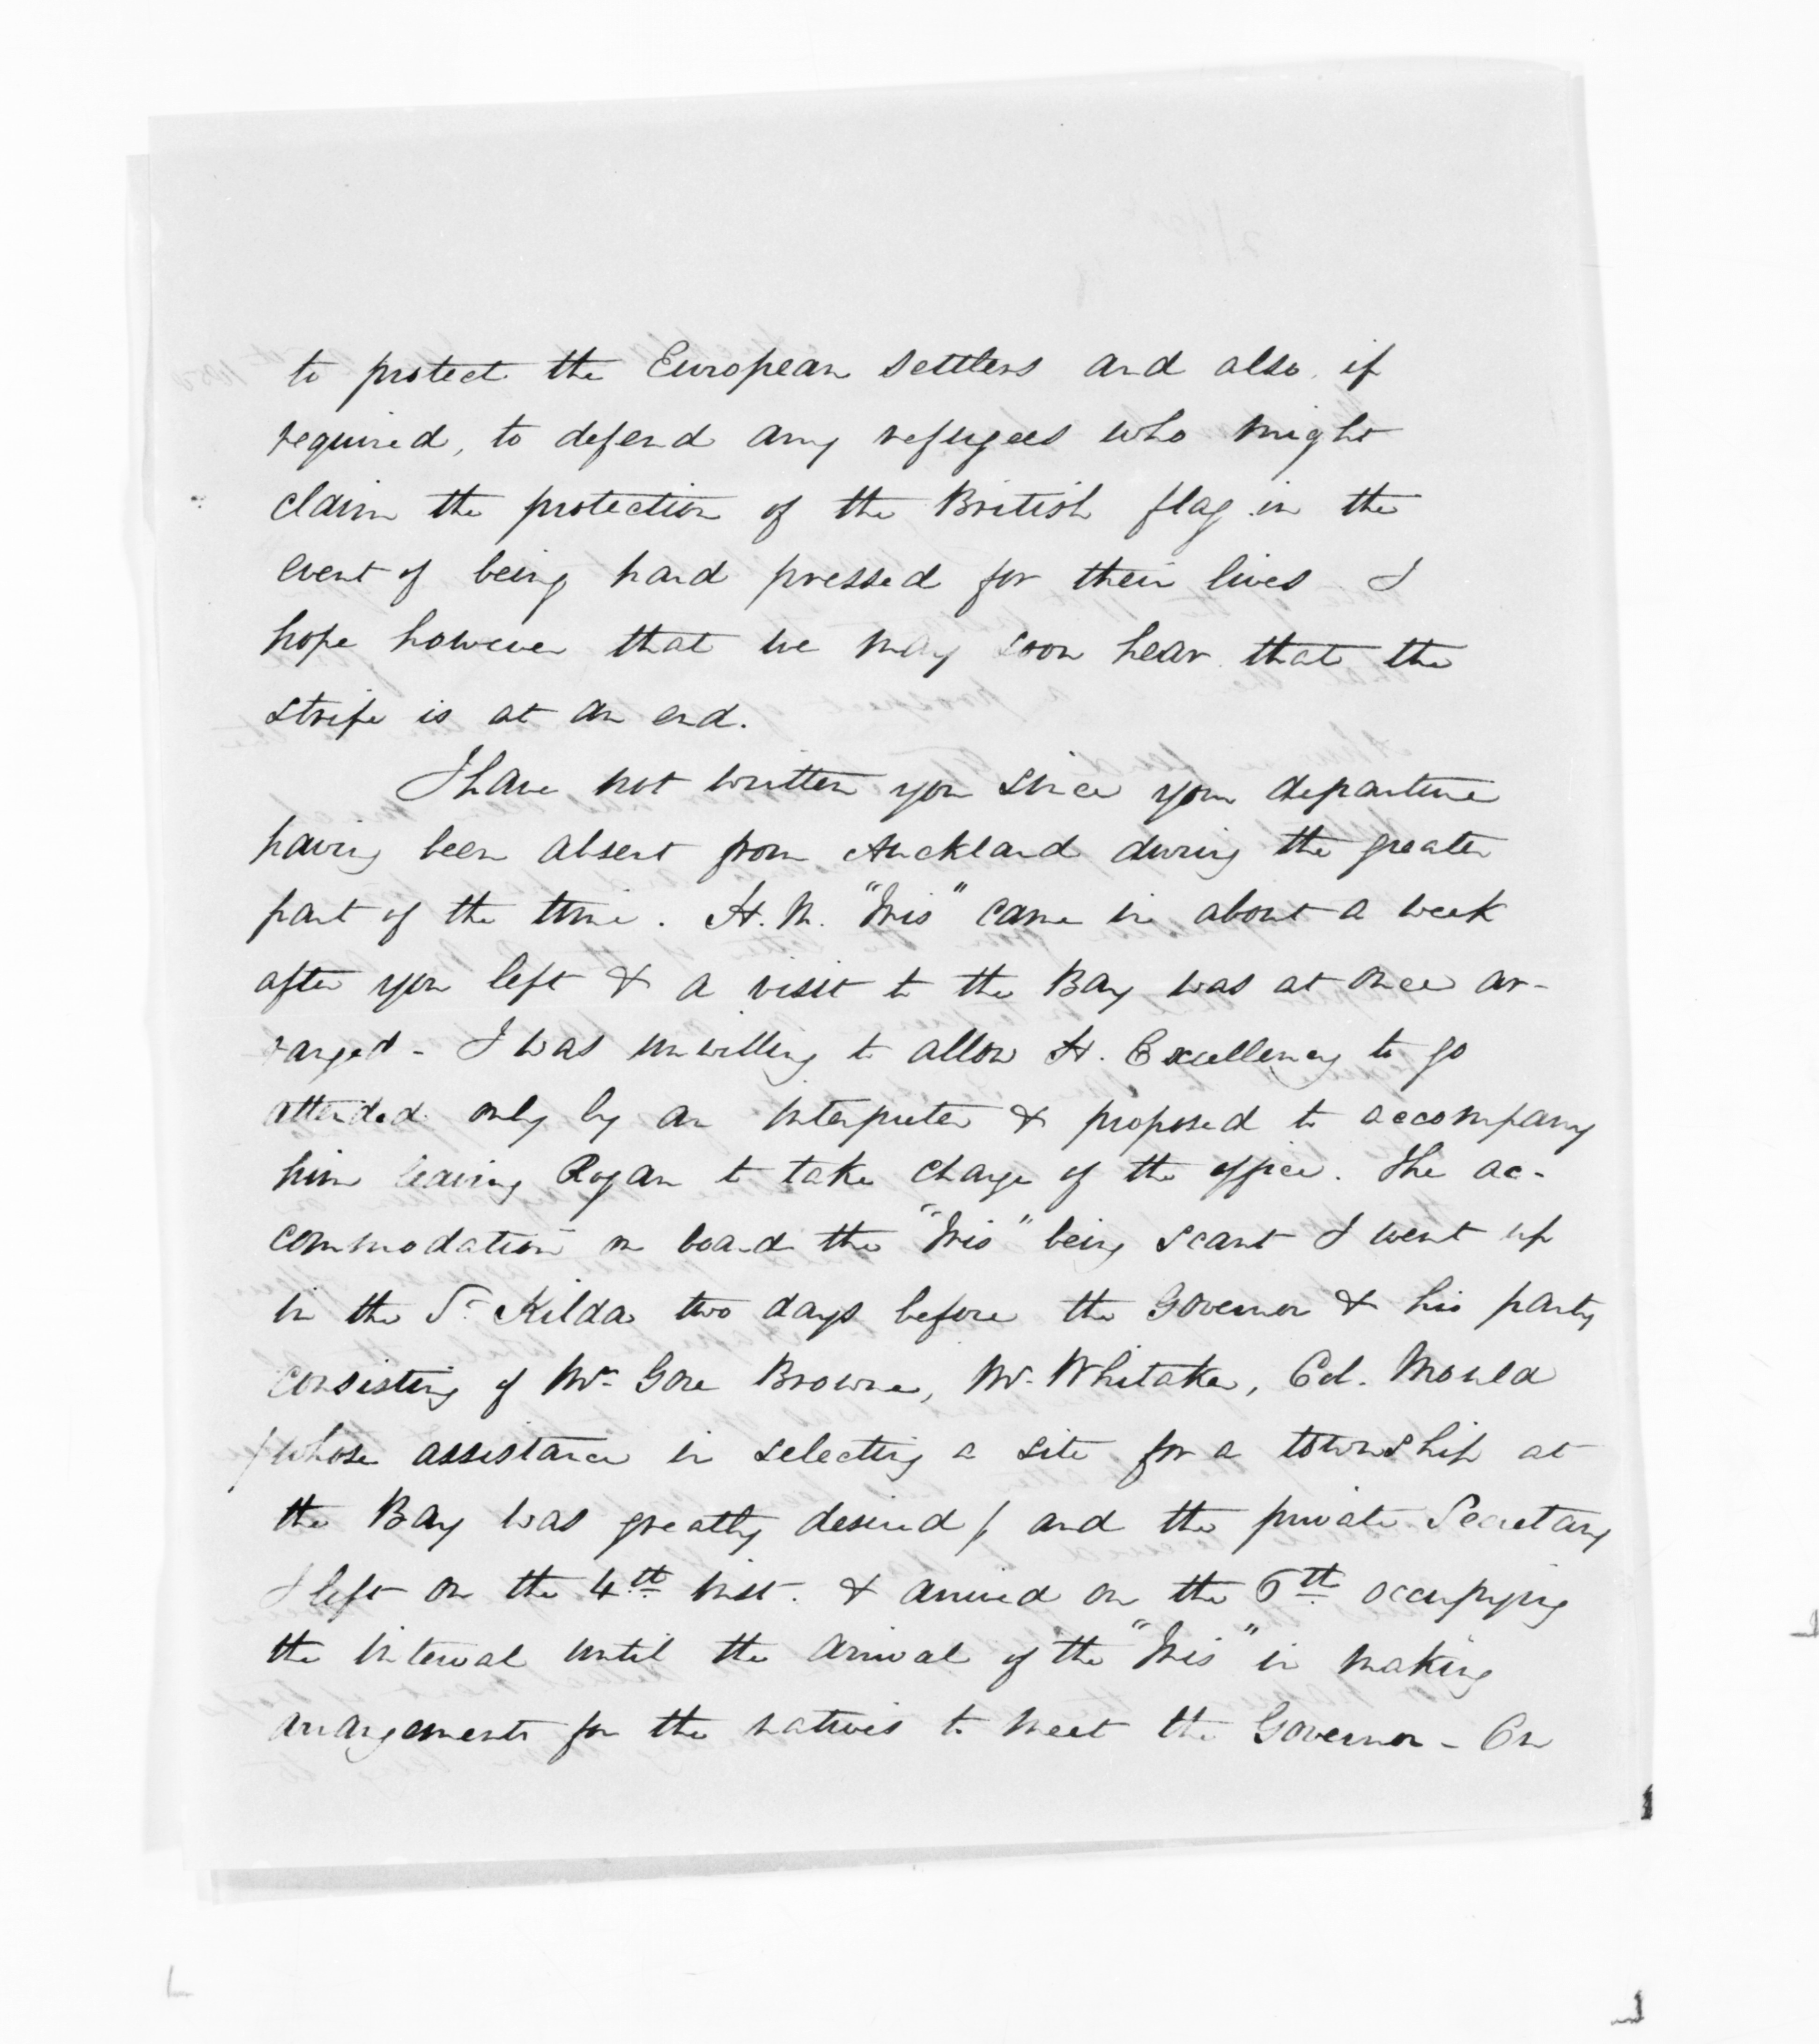 to protect the European settlers and also, if
required, to defend any refugees who might
claim the protection of the British flag in the
event of being hard pressed for their lives I
hope however that we may soon hear that the
strife is at an end.
I have not written you since your departure
having been absent from Auckland during the greater
part of the time. H.M. "Iris" came in about a week
after you left & a visit to the Bay was at once ar-
ranged - I was unwilling to allow H. Excellency to go
attended only by an interpreter & proposed to accompany
him leaving Rogan to take charge of the office. The ac-
commodation on board the "Iris" being scant I went up
in the St. Kilda two days before the Governor & his party
consisting of Mrs Gore Browne, Mr. Whitaker, Col. Mould
/whose assistance in selecting a site for a township at
the Bay was greatly desired/ and the private Secretary
I left on the 4th inst. & arrived on the 6th occupying
the interval until the arrival of the "Iris" in making
arrangements for the natives to meet the Governor - On